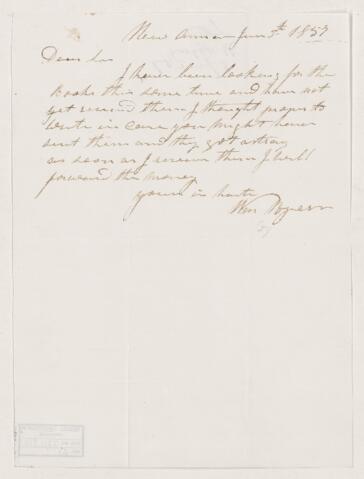 New Anna June 5th 1857
Dear Sir
I have been looking for the
Books this some time and have not
yet received them I thought proper to
write in case you might have
sent them and they got astray
as soon as I receive them I will
forward the money
yours in haste
Wm